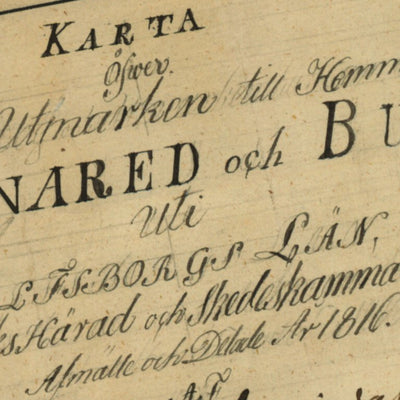 KARTA
öfwer
Utmarken till Hemm
NARED och BU
Uti
LFSBORGS LÄN,
s Härad och Skedeskamma
Afmätte och Delade År 1816.
AF